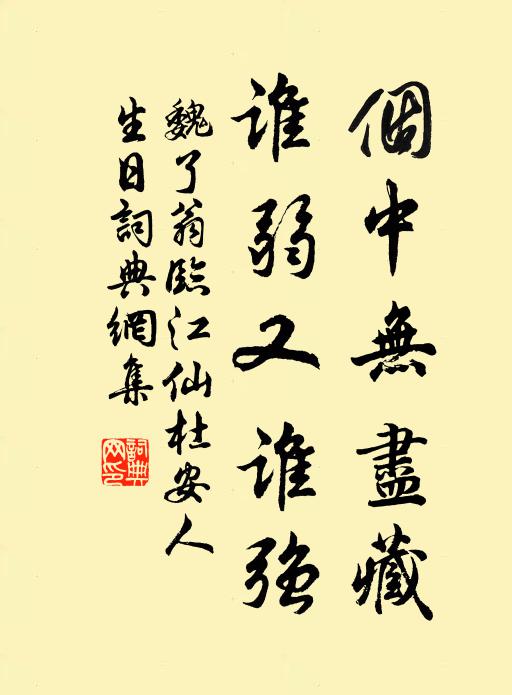 個中無盡藏
誰弱又誰強
魏了翁臨江仙杜安人
生日詞典網集
詞典网印